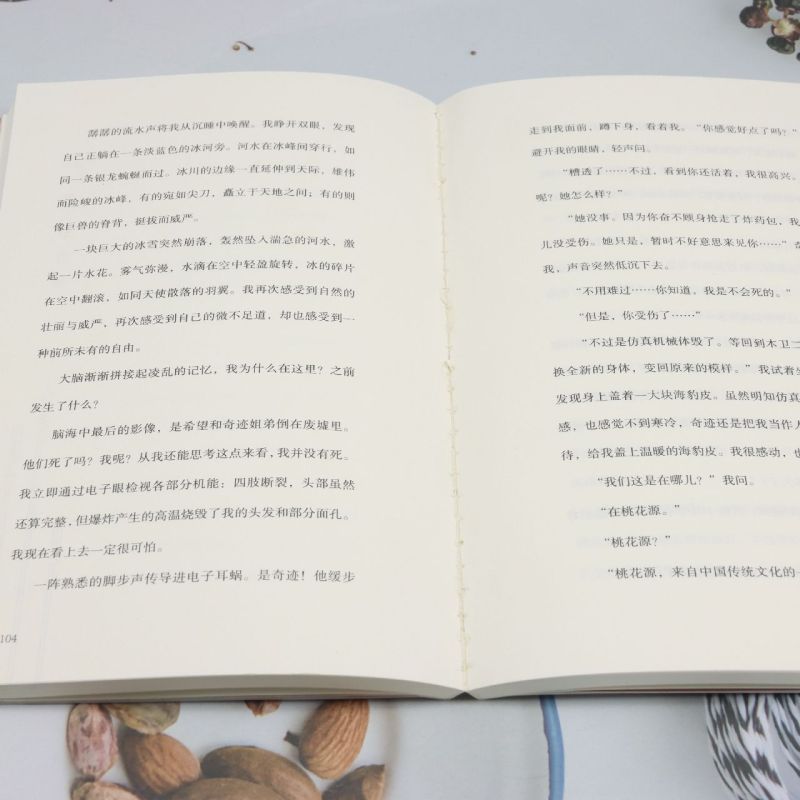 潺潺的流水声将我从沉睡中唤醒。我睁开双眼，发现
自己正躺在一条淡蓝色的冰河旁。河水在冰峰间穿行，如
同一条银龙蜿蜒而过。冰川的边缘一直延伸到天际，雄伟
而险峻的冰峰，有的宛如尖刀，矗立于天地之间；有的则
像巨兽的脊背，挺拔而威严。
一块巨大的冰雪突然崩落，轰然坠入湍急的河水，激
起一片水花。雾气弥漫，水滴在空中轻盈旋转，冰的碎片
在空中翻滚，如同天使散落的羽翼。我再次感受到自然的
壮丽与威严，再次感受到自己的微不足道，却也感受到一
种前所未有的自由。
大脑渐渐拼接起凌乱的记忆，我为什么在这里？之前
发生了什么？
脑海中最后的影像，是希望和奇迹姐弟倒在废墟里。
他们死了吗？我呢？从我还能思考这点来看，我并没有死。
我立即通过电子眼检视各部分机能：四肢断裂，头部虽然
还算完整，但爆炸产生的高温烧毁了我的头发和部分面孔。
我现在看上去一定很可怕。
一阵熟悉的脚步声传导进电子耳蜗。是奇迹！他缓步
104
走到我面前，蹲下身，看着我。“你感觉好点了吗？”
避开我的眼睛，轻声问。
“糟透了……不过，看到你还活着，我很高兴。
呢？她怎么样？”
“她没事。因为你奋不顾身抢走了炸药包，我
儿没受伤。她只是，暂时不好意思来见你……”
我，声音突然低沉下去。
“不用难过……你知道，我是不会死的。”
“但是，你受伤了……”
“不过是仿真机械体毁了。等回到木卫二
换全新的身体，变回原来的模样。”我试着
发现身上盖着一大块海豹皮。虽然明知仿真
感，也感觉不到寒冷，奇迹还是把我当作人
待，给我盖上温暖的海豹皮。我很感动，
“我们这是在哪儿？”我问。
“在桃花源。”
“桃花源？”
“桃花源，来自中国传统文化的